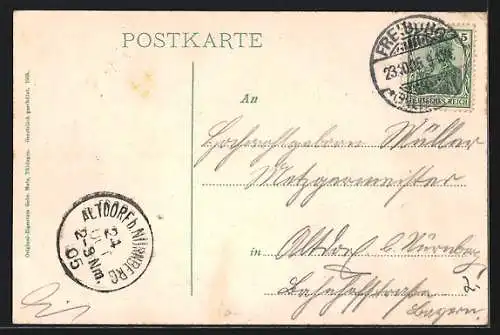 POSTKARTE
FREIBURG
23.10.05. 9-10V.
DEUTSCHES REICH
5
An
Hochwohlgeboren Müller
Metzgermeister
in Altdorf b. Nürnberg
Bahnhofstrasse
Bayern.
ALTDORF b. NÜRNBERG
24
OKT
2-3 Nm.
05
Original-Eigentum Gebr. Metz, Tübingen. Gesetzlich geschützt. 1905.